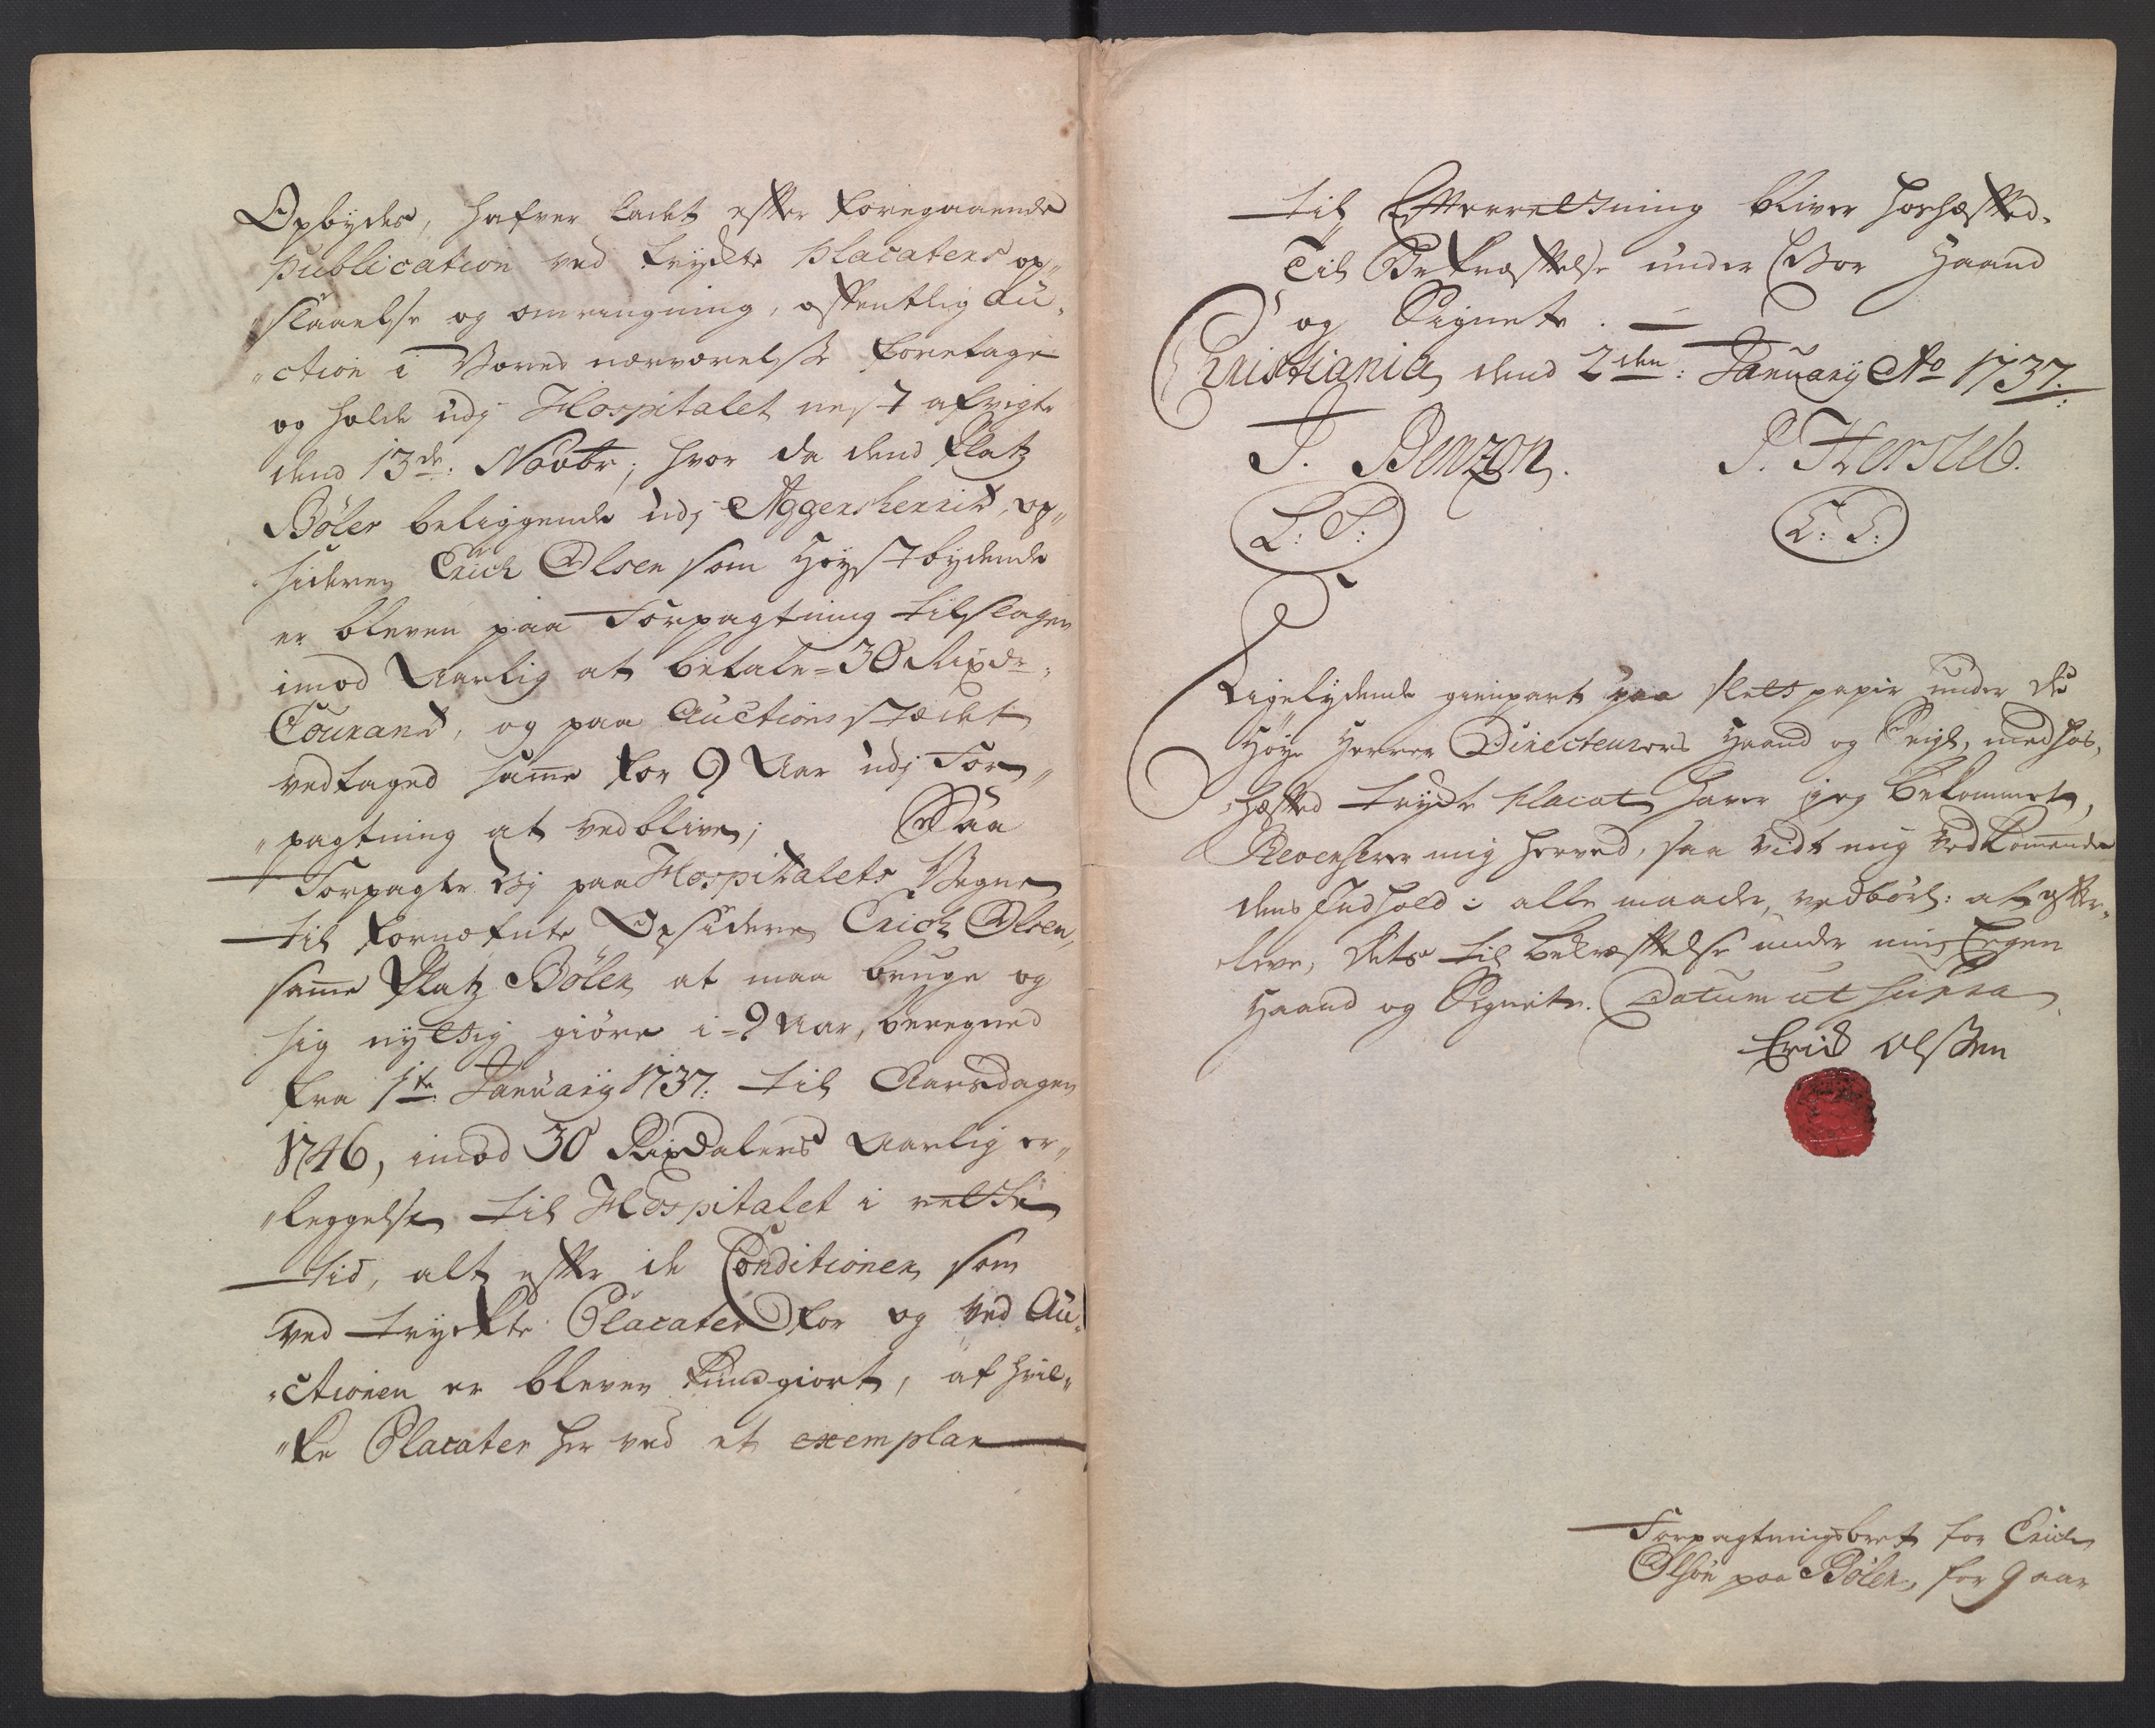 Opbydes, hafver ladet efter foregaaende
publication ved trykte placaters op„
„slaaelse og omringning, offentlig Au„
„ction i Vores nærværelse foretage
og holde udj Hospitalet nest afvigte
dend 13de: Novbr; hvor da dend Platz
Bøler beliggende udj Aggersherrit, op„
„sideren Erich Olsen som Høystbydende
er bleven paa Forpagtning tilslagen
imod Aarlig at betale = 30 Rixdr.
Courant, og paa Auctions stædet
vedtaged same for 9 Aar udj For„
„pagtning at vedblive; Saa
Forpagte Vj paa Hospitalets Vegne
til fornefnte Opsidere Erich Olsen,
same Platz Bøler at maa bruge og
sig nyttig giøre i = 9 Aar, beregned
fra 1te January 1737. til Aarsdagen
1746, imod 30 Rixdalers Aarlig er„
„leggelse til Hospitalet i rette
tid, alt efter de Conditioner som
ved tryckte Placater for og ved Au„
„ctionen er bleven kundgiort, af hvil„
„ke Placater her ved et exemplar
til Efterretning bliver hoshæfted.
Til Bekræftelse under Vor Haand
og Signete. —
Christiania dend 2den: January Ao 1737.
J. Benzon. P. Hersleb.
L: S: L: S:
Ligelydende gienpart paa slett papir under de
Høye Herrer Directeurers Haand og Seigl, med hos„
„hæfted trykt placat haver jeg bekommet,
Reverserer mig herved, saa vidt mig vedkomende
dens Indhold i alle maade, vedbørl: at efter„
„leve, Dets til bekræftelse under min Egen
Haand og Signete. Datum ut supra
Erick Olssen
Forpagtningsbref for Erich
Olsøn paa Bøler, for 9 aar